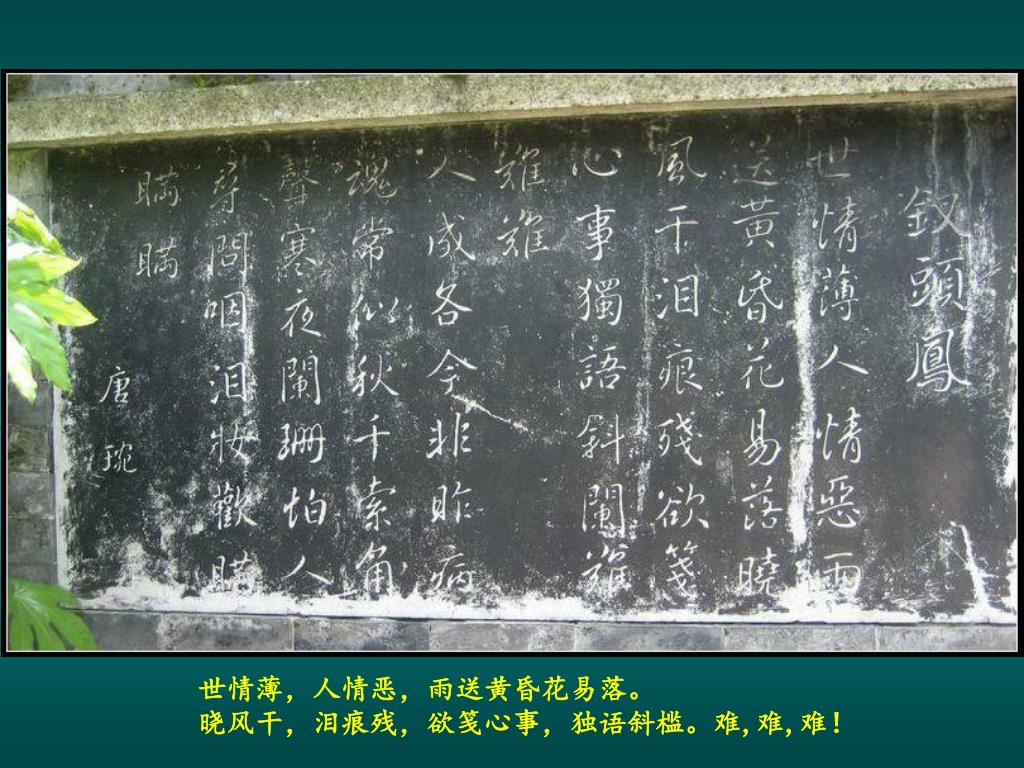 釵頭鳳
世情薄人情惡雨
送黄昏花易落曉
風干泪痕殘欲箋
心事獨語斜闌難
難難
人成各今非昨病
魂常似秋千索角
聲寒夜闌珊怕人
尋問咽泪妝歡瞞
瞞瞞
唐琬
世情薄，人情恶，雨送黄昏花易落。
晓风干，泪痕残，欲笺心事，独语斜槛。难,难,难！